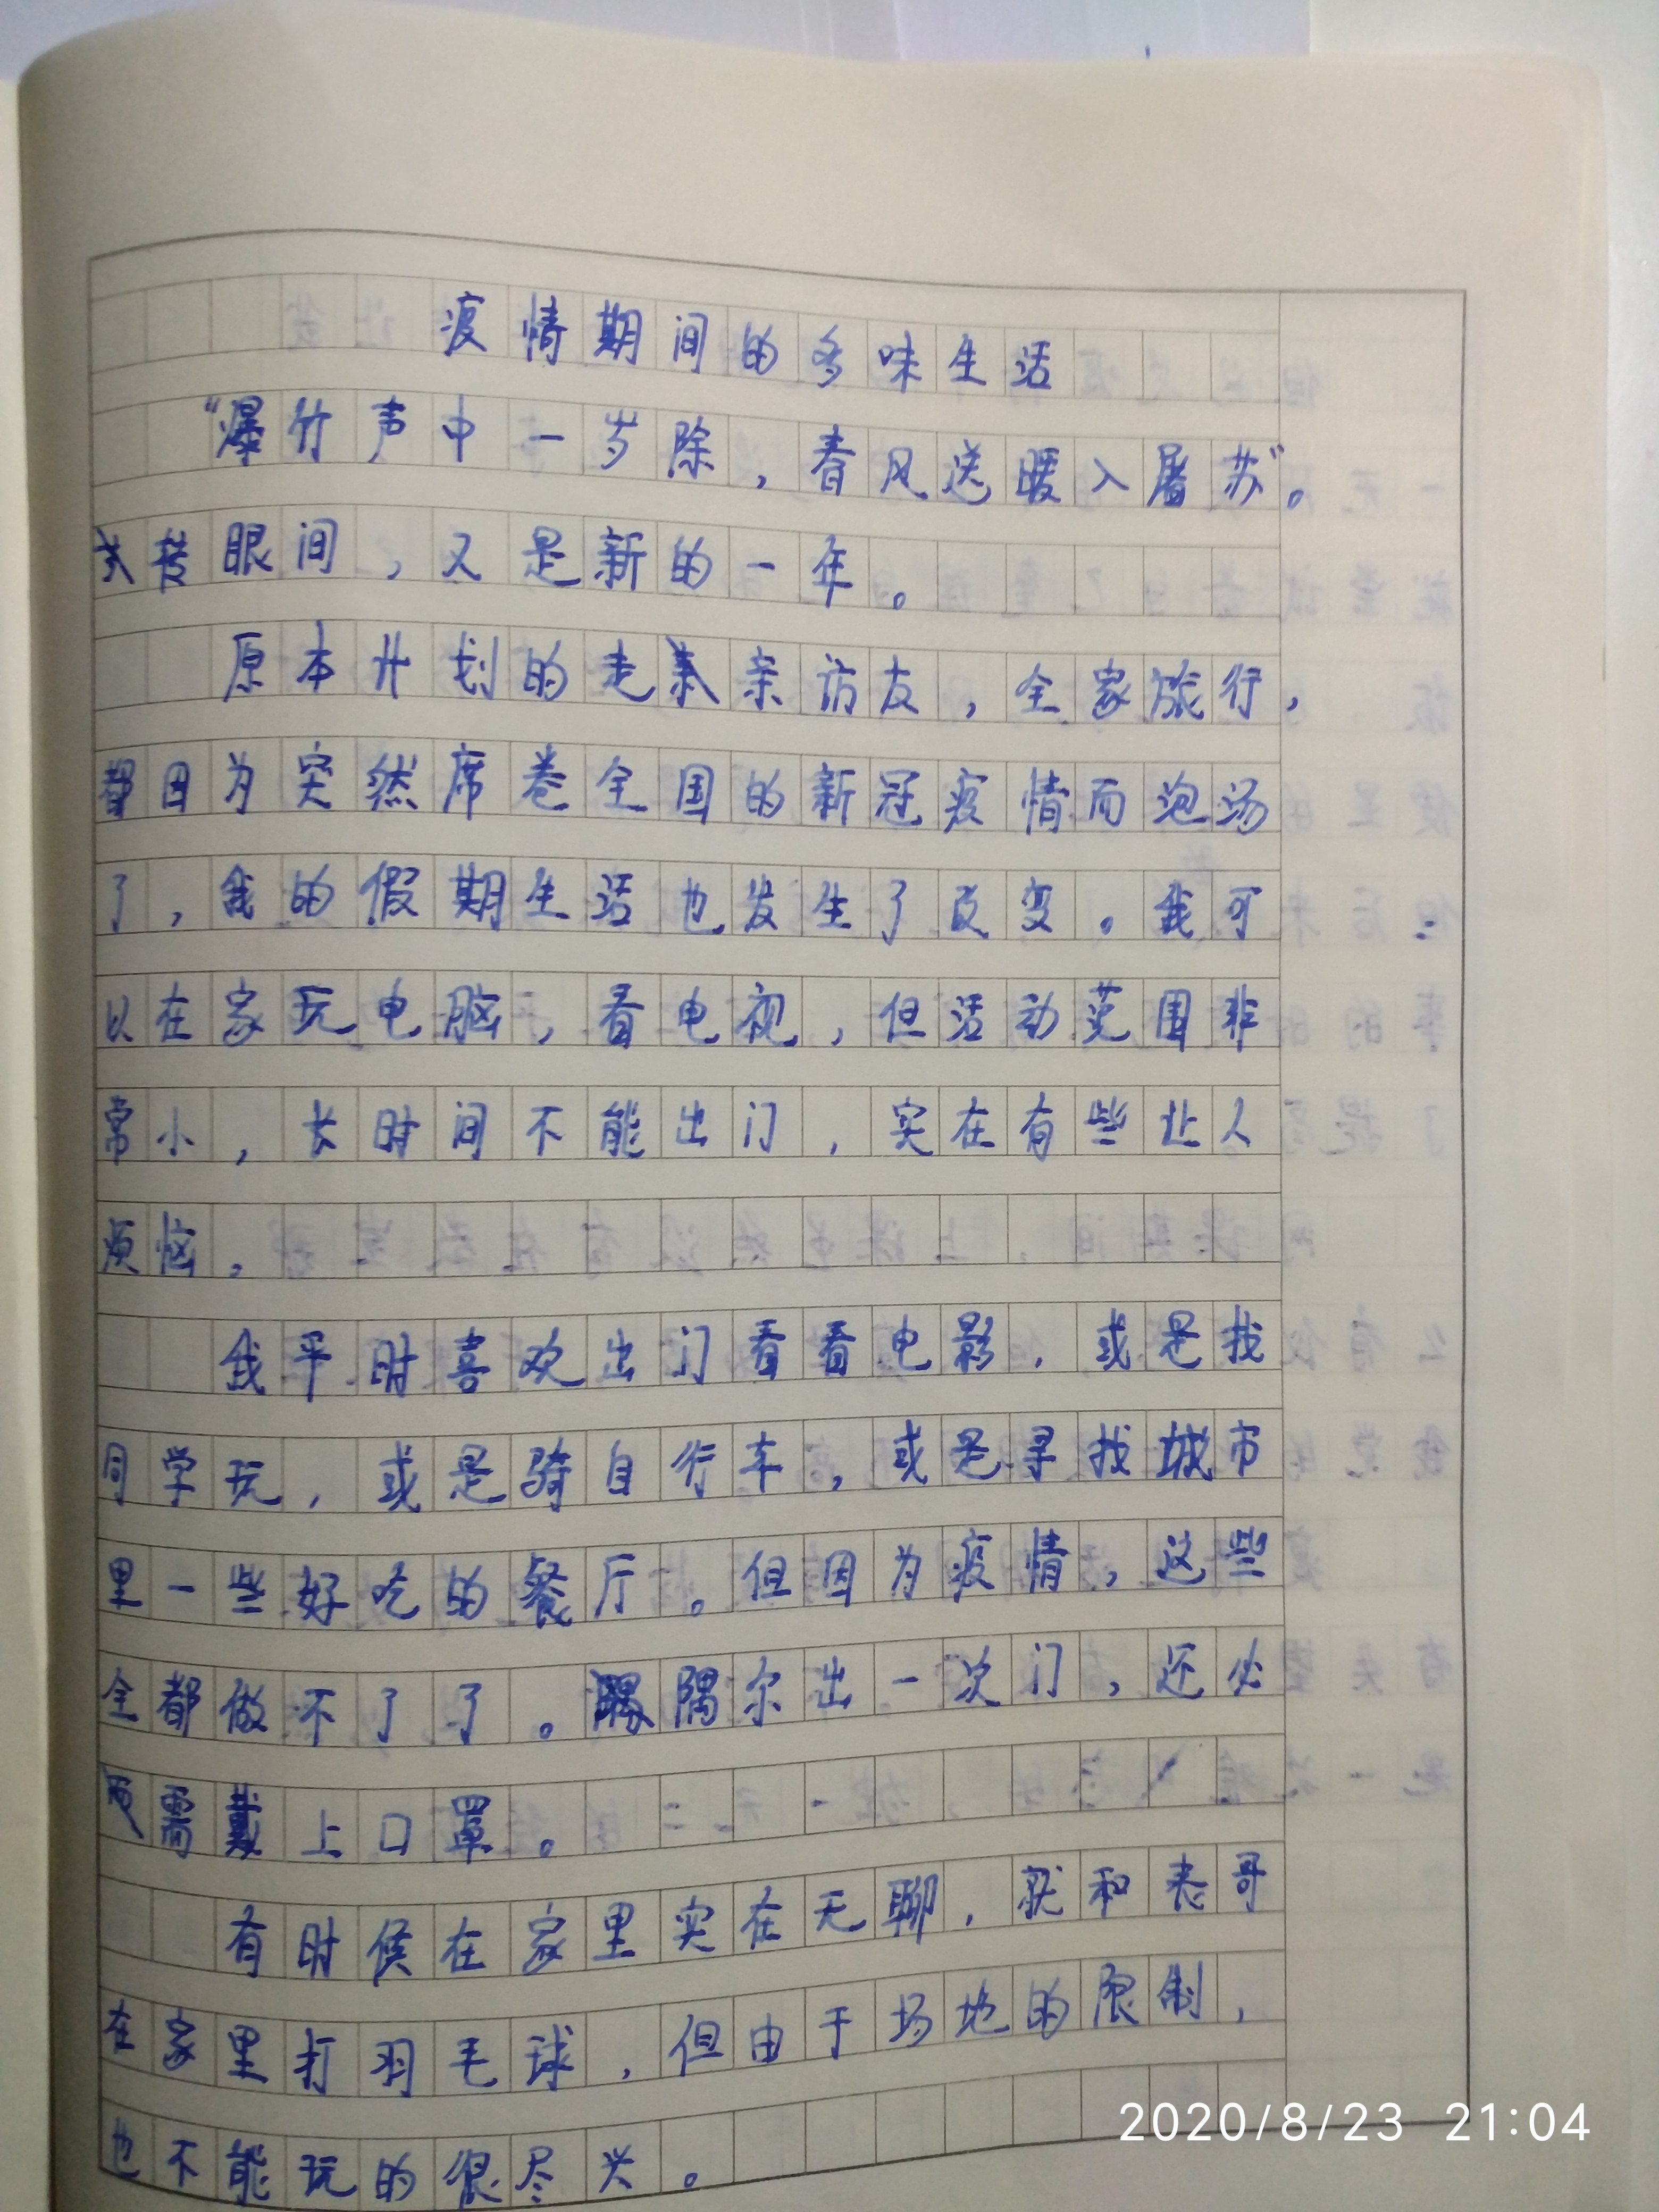 疫情期间的多味生活
“爆竹声中一岁除，春风送暖入屠苏”。
转眼间，又是新的一年。
原本计划的走亲访友，全家旅行，
都因为突然席卷全国的新冠疫情而泡汤
了，我的假期生活也发生了改变。我可
以在家玩电脑，看电视，但活动范围非
常小，长时间不能出门，实在有些让人
烦恼，
我平时喜欢出门看看电影，或是找
同学玩，或是骑自行车，或是寻找城市
里一些好吃的餐厅。但因为疫情，这些
全都做不了了。隅尔出一次门，还必
需戴上口罩。
有时候在家里实在无聊，就和表哥
在家里打羽毛球，但由于场地的限制，
也不能玩的很尽兴。
2020/8/23 21:04